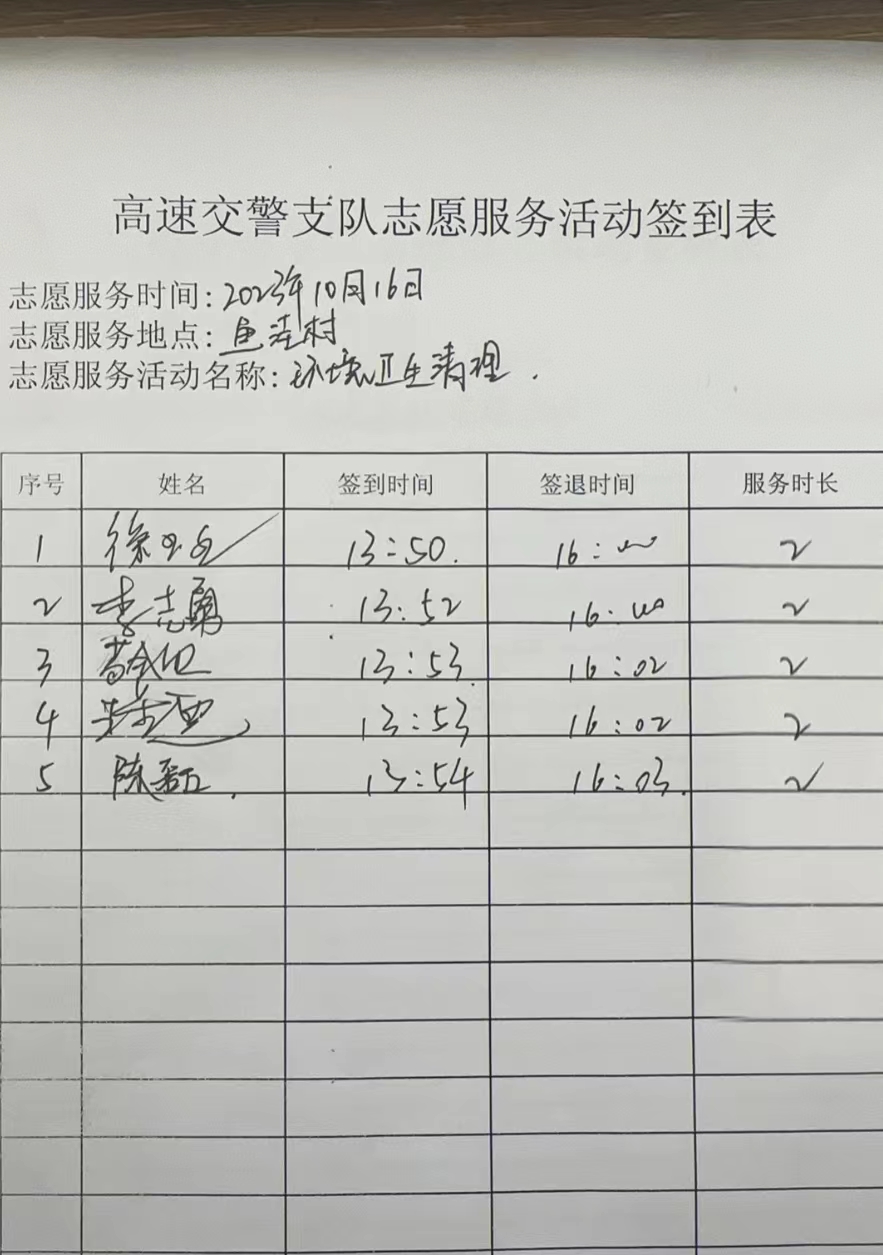 高速交警支队志愿服务活动签到表
志愿服务时间：2023年10月16日
志愿服务地点：鱼洼村
志愿服务活动名称：环境卫生清理.
序号 姓名 签到时间 签退时间 服务时长
1 徐 13:50. 16:00 2
2 李志勇 13:52 16:00 2
3 13:53 16:02 2
4 13:53 16:02 2
5 陈 13:54 16:03. 2